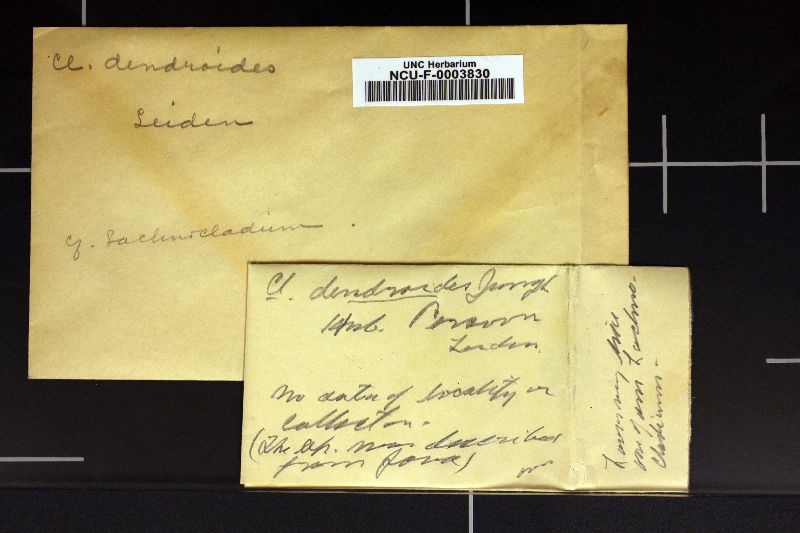 Cl. dendroides
Leiden
UNC Herbarium
NCU-F-0003830
cf. Lachnocladium
Cl. dendroides Jungh
Herb. Persoon
Leiden
No data of locality or
collector.
(The sp. was described
from Java)
Lachno-
cladium-